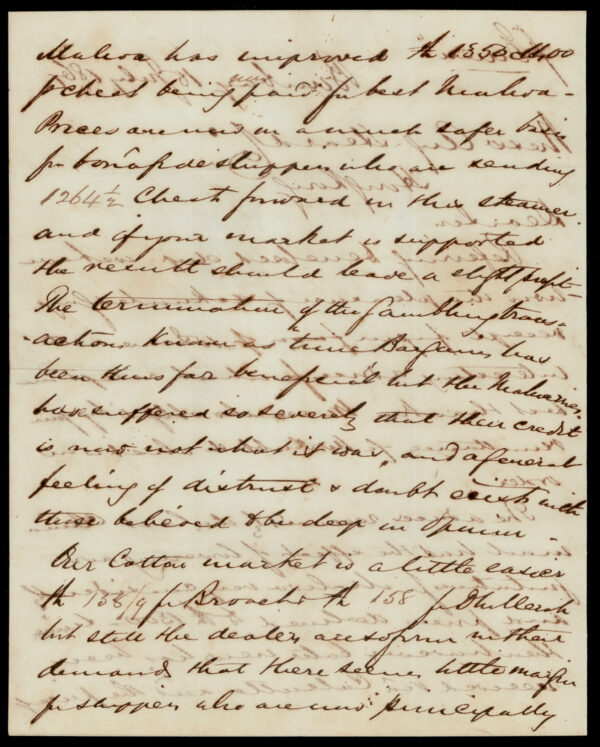 Malwa has improved to 1350 @ 1400
p chest being now paid for best Malwa -
Prices are now on a much safer basis
for bonâfide shippers who are sending
1264½ Chests forward in this steamer
and if your market is supported
the result should leave a slight profit -
The termination of the Gambling trans-
-actions known as "time Bargains" has
been thus far beneficial but the Malwarries
have suffered so severely that their credit
is now not what it was, and a general
feeling of distrust & doubt exist with
those believed to be deep in Opium -
Our Cotton market is a little easier
158/9 for Broach & 158 for Dhollerah
but still the dealers are so firm in their
demands that there seems little margin
for shippers who are now principally